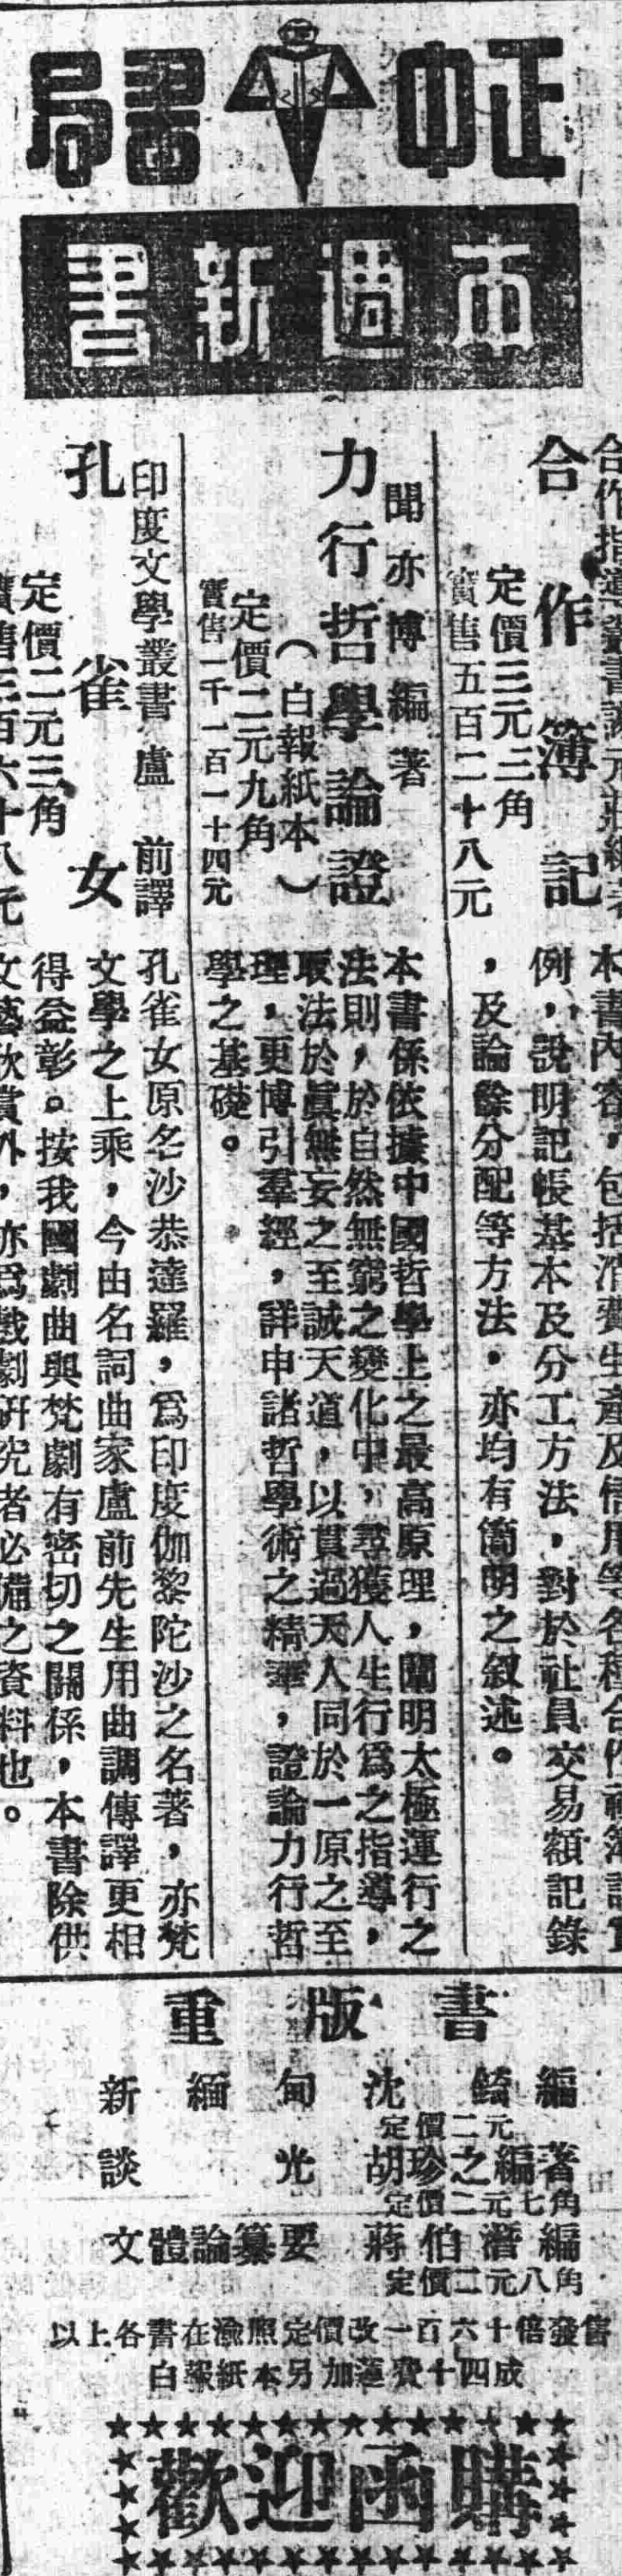 正中書局
本週新書
合作指導叢書 謝元莊編著
合作簿記
定價三元三角
實售五百二十八元
本書內容，包括消費生產及信用等各種合作社簿記實
例，說明記帳基本及分工方法，對於社員交易額記錄
，及論餘分配等方法，亦均有簡明之叙述。
聞亦博編著
力行哲學論證
（白報紙本）
定價二元九角
實售一千一百一十四元
本書係依據中國哲學上之最高原理，闡明太極運行之
法則，於自然無窮之變化中，尋獲人生行為之指導，
取法於真無妄之至誠天道，以貫過天人同於一原之至
理，更博引羣經，詳申諸哲學術之精華，證論力行哲
學之基礎。
印度文學叢書 盧前譯
孔雀女
定價二元三角
實售三百六十八元
孔雀女原名沙恭達羅，為印度伽黎陀沙之名著，亦梵
文學之上乘，今由名詞曲家盧前先生用曲調傳譯更相
得益彰。按我國劇曲與梵劇有密切之關係，本書除供
文藝欣賞外，亦為戲劇研究者必備之資料也。
重版書
新緬甸 沈錡編
定價二元
談光 胡珍之編著
定價二元七角
文體論纂要 蔣伯潛編
定價二元八角
以上各書在渝照定價改一百六十倍發售
白報紙本另加運費十四成
歡迎函購